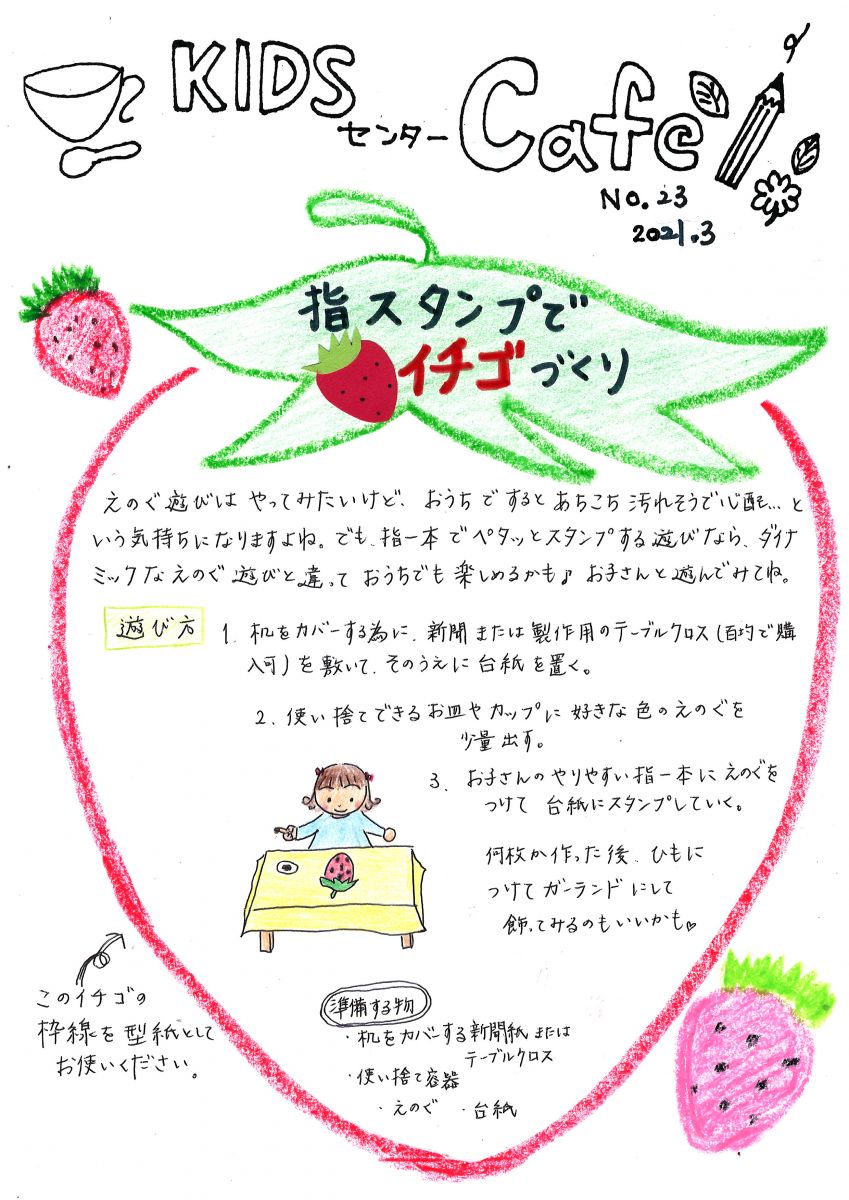 KIDS
センター Cafe
No.23
2021.3
指スタンプで
イチゴづくり
えのぐ遊びは やってみたいけど、おうちで するとあちこち 汚れそうで心配…と
いう気持ちになりますよね。でも、指一本でペタッとスタンプする遊びなら、ダイナ
ミックなえのぐ遊びと違って おうちでも楽しめるかも♪ お子さんと遊んでみてね。
遊び方
1. 机をカバーする為に、新聞または製作用のテーブルクロス(百均で購
入可)を敷いて、そのうえに台紙を置く。
2. 使い捨てできるお皿やカップに好きな色のえのぐを
少量出す。
3. お子さんのやりやすい指一本にえのぐを
つけて 台紙にスタンプしていく。
何枚か作った後、ひもに
つけてガーランドにして
飾ってみるのもいいかも♡
このイチゴの
枠線を型紙として
お使いください。
準備する物
・机をカバーする新聞紙または
テーブルクロス
・使い捨て容器
・えのぐ ・台紙